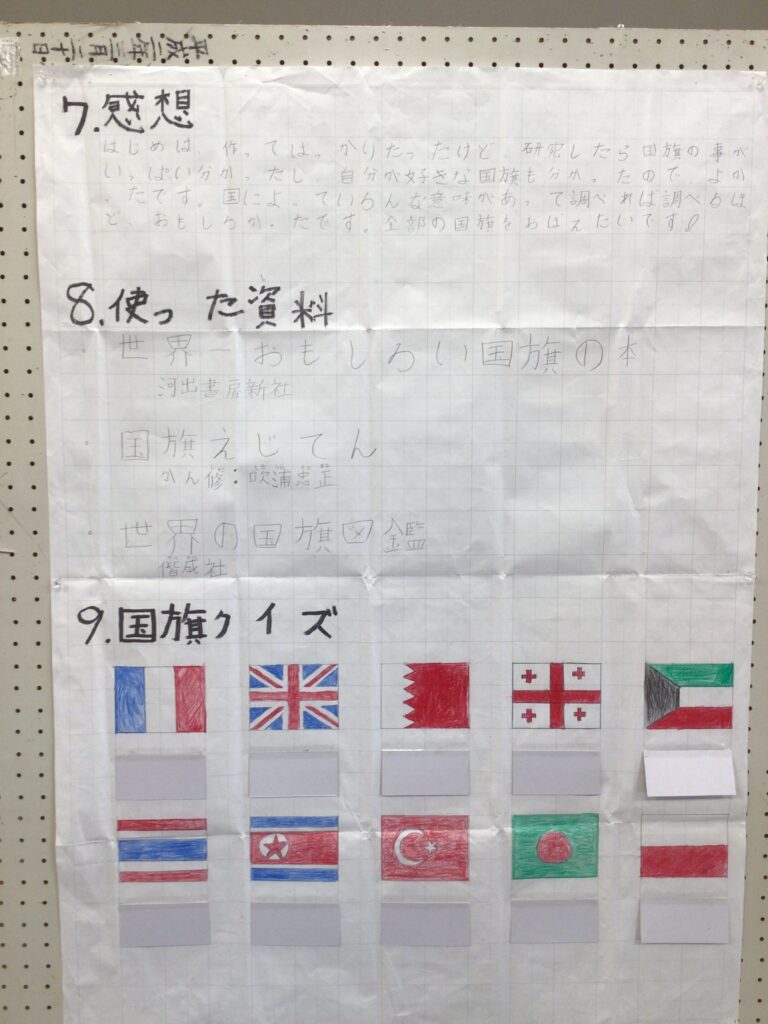 平成二年三月二十日
7.感想
はじめは、作ってはっかりたったけど、研究したら国旗の事が
いっぱい分かったし、自分が好きな国旗も分かったので、よか
ったです。国によっていろんな意味があって調べれば調べるほ
ど、おもしろかったです。全部の国旗をおぼえたいです!
8.使った資料
・世界一おもしろい国旗の本
河出書房新社
・国旗えじてん
かん修:吹浦忠正
・世界の国旗図鑑
偕成社
9.国旗クイズ